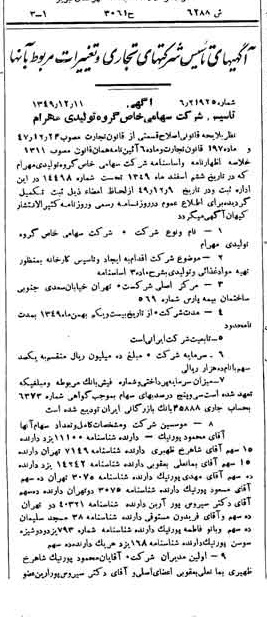 ش ۶۲۸۸ ح۳۰۶۱ ۱-۳
آگهیهای تأسیس شرکتهای تجاری و تغییرات مربوط بآنها
شماره ۶/۲۱۹۲۵ آگهی ۱۳۴۹/۱۲/۱۱
تاسیس شرکت سهامی خاص گروه تولیدی مهرام
نظر بلایحه قانونی اصلاح قسمتی از قانون تجارت مصوب ۴۷/۱۲/۲۳
و ماده ۱۹۷ قانون تجارت و ماده ۶ آئین‌نامه همان قانون مصوب ۱۳۱۱
خلاصه اظهارنامه و اساسنامه شرکت سهامی خاص گروه تولیدی مهرام
که در تاریخ ششم اسفند ماه ۱۳۴۹ تحت شماره ۱۴۴۶۸ در این
اداره ثبت و در تاریخ ۴۹/۱۲/۹ از لحاظ امضاء ذیل ثبت تکمیل
گردیده برای اطلاع عموم در روزنامه رسمی و روزنامه کثیرالانتشار
کیهان آگهی میگردد
۱ - نام و نوع شرکت - شرکت سهامی خاص گروه
تولیدی مهرام
۲ - موضوع شرکت اقدام به ایجاد و تاسیس کارخانه بمنظور
تهیه مواد غذائی و تولیدی بشرح ماده ۳ اساسنامه
۳ - مرکز اصلی شرکت - تهران خیابان سعدی جنوبی
ساختمان بیمه پارس شماره ۵۶۹
۴ - مدت شرکت - از تاریخ بیست و یکم بهمن ماه ۱۳۴۹ بمدت
نامحدود
۵ - تابعیت شرکت ایرانی است
۶ - سرمایه شرکت - مبلغ ده میلیون ریال منقسم به یکصد
سهم با نام ده هزار ریالی
۷ - میزان سرمایه پرداختی و شماره فیش بانک مربوطه و مبلغی که
تعهد شده سی و پنج درصد بهای سهام بموجب گواهی شماره ۶۳۷۳
بحساب جاری ۴۵۸۸۸ بانک بازرگانی ایران تودیع شده است
۸ - موسسین شرکت و مشخصات کامل و تعداد سهام آنها
آقای محمود پورنیک - دارنده شناسنامه ۱۱۱۰۰ یزد دارنده
۱۵ سهم آقای شاهرخ ظهیری دارنده شناسنامه ۷۱۴۹ تهران دارنده
۱۵ سهم آقای بمانعلی یعقوبی دارنده شناسنامه ۱۴۲۴۲ یزد دارنده
ده سهم آقای مهدی پورنیک دارنده شناسنامه ۳۰۷۵ تهران ده سهم
آقای مسعود پورنیک دارنده شناسنامه ۳۰۷۵ دو تهران دارنده ده سهم
آقای دکتر سیروس پور آرین دارنده شناسنامه ۴۰۳۲۱ دو تهران
ده سهم و آقای فریدون مستوفی دارنده شناسنامه ۳۸ مسجد سلیمان
ده سهم و بانو فاطمه پورنیک دارنده شناسنامه شماره ۷۹۳ یزد و دوشیزه
سوسن پورنیک دارنده شناسنامه ۱۶۸ یزد هریک دارنده ده سهم
۹ - اولین مدیران شرکت - آقایان محمود پورنیک شاهرخ
ظهیری بمانعلی یعقوبی اعضای اصلی و آقای دکتر سیروس پورارین عضو